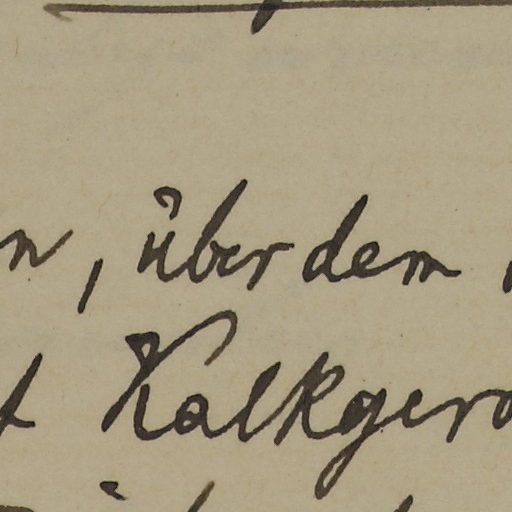 n, über dem
Kalkgero